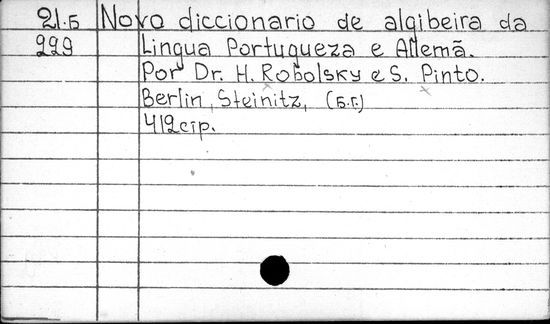 21.Б Novo diccionario de algibeira da
999 Lingua Portugueza e Allemã.
Por Dr. H. Robolsky e S. Pinto.
Berlin, Steinitz, (б.г.)
412 стр.